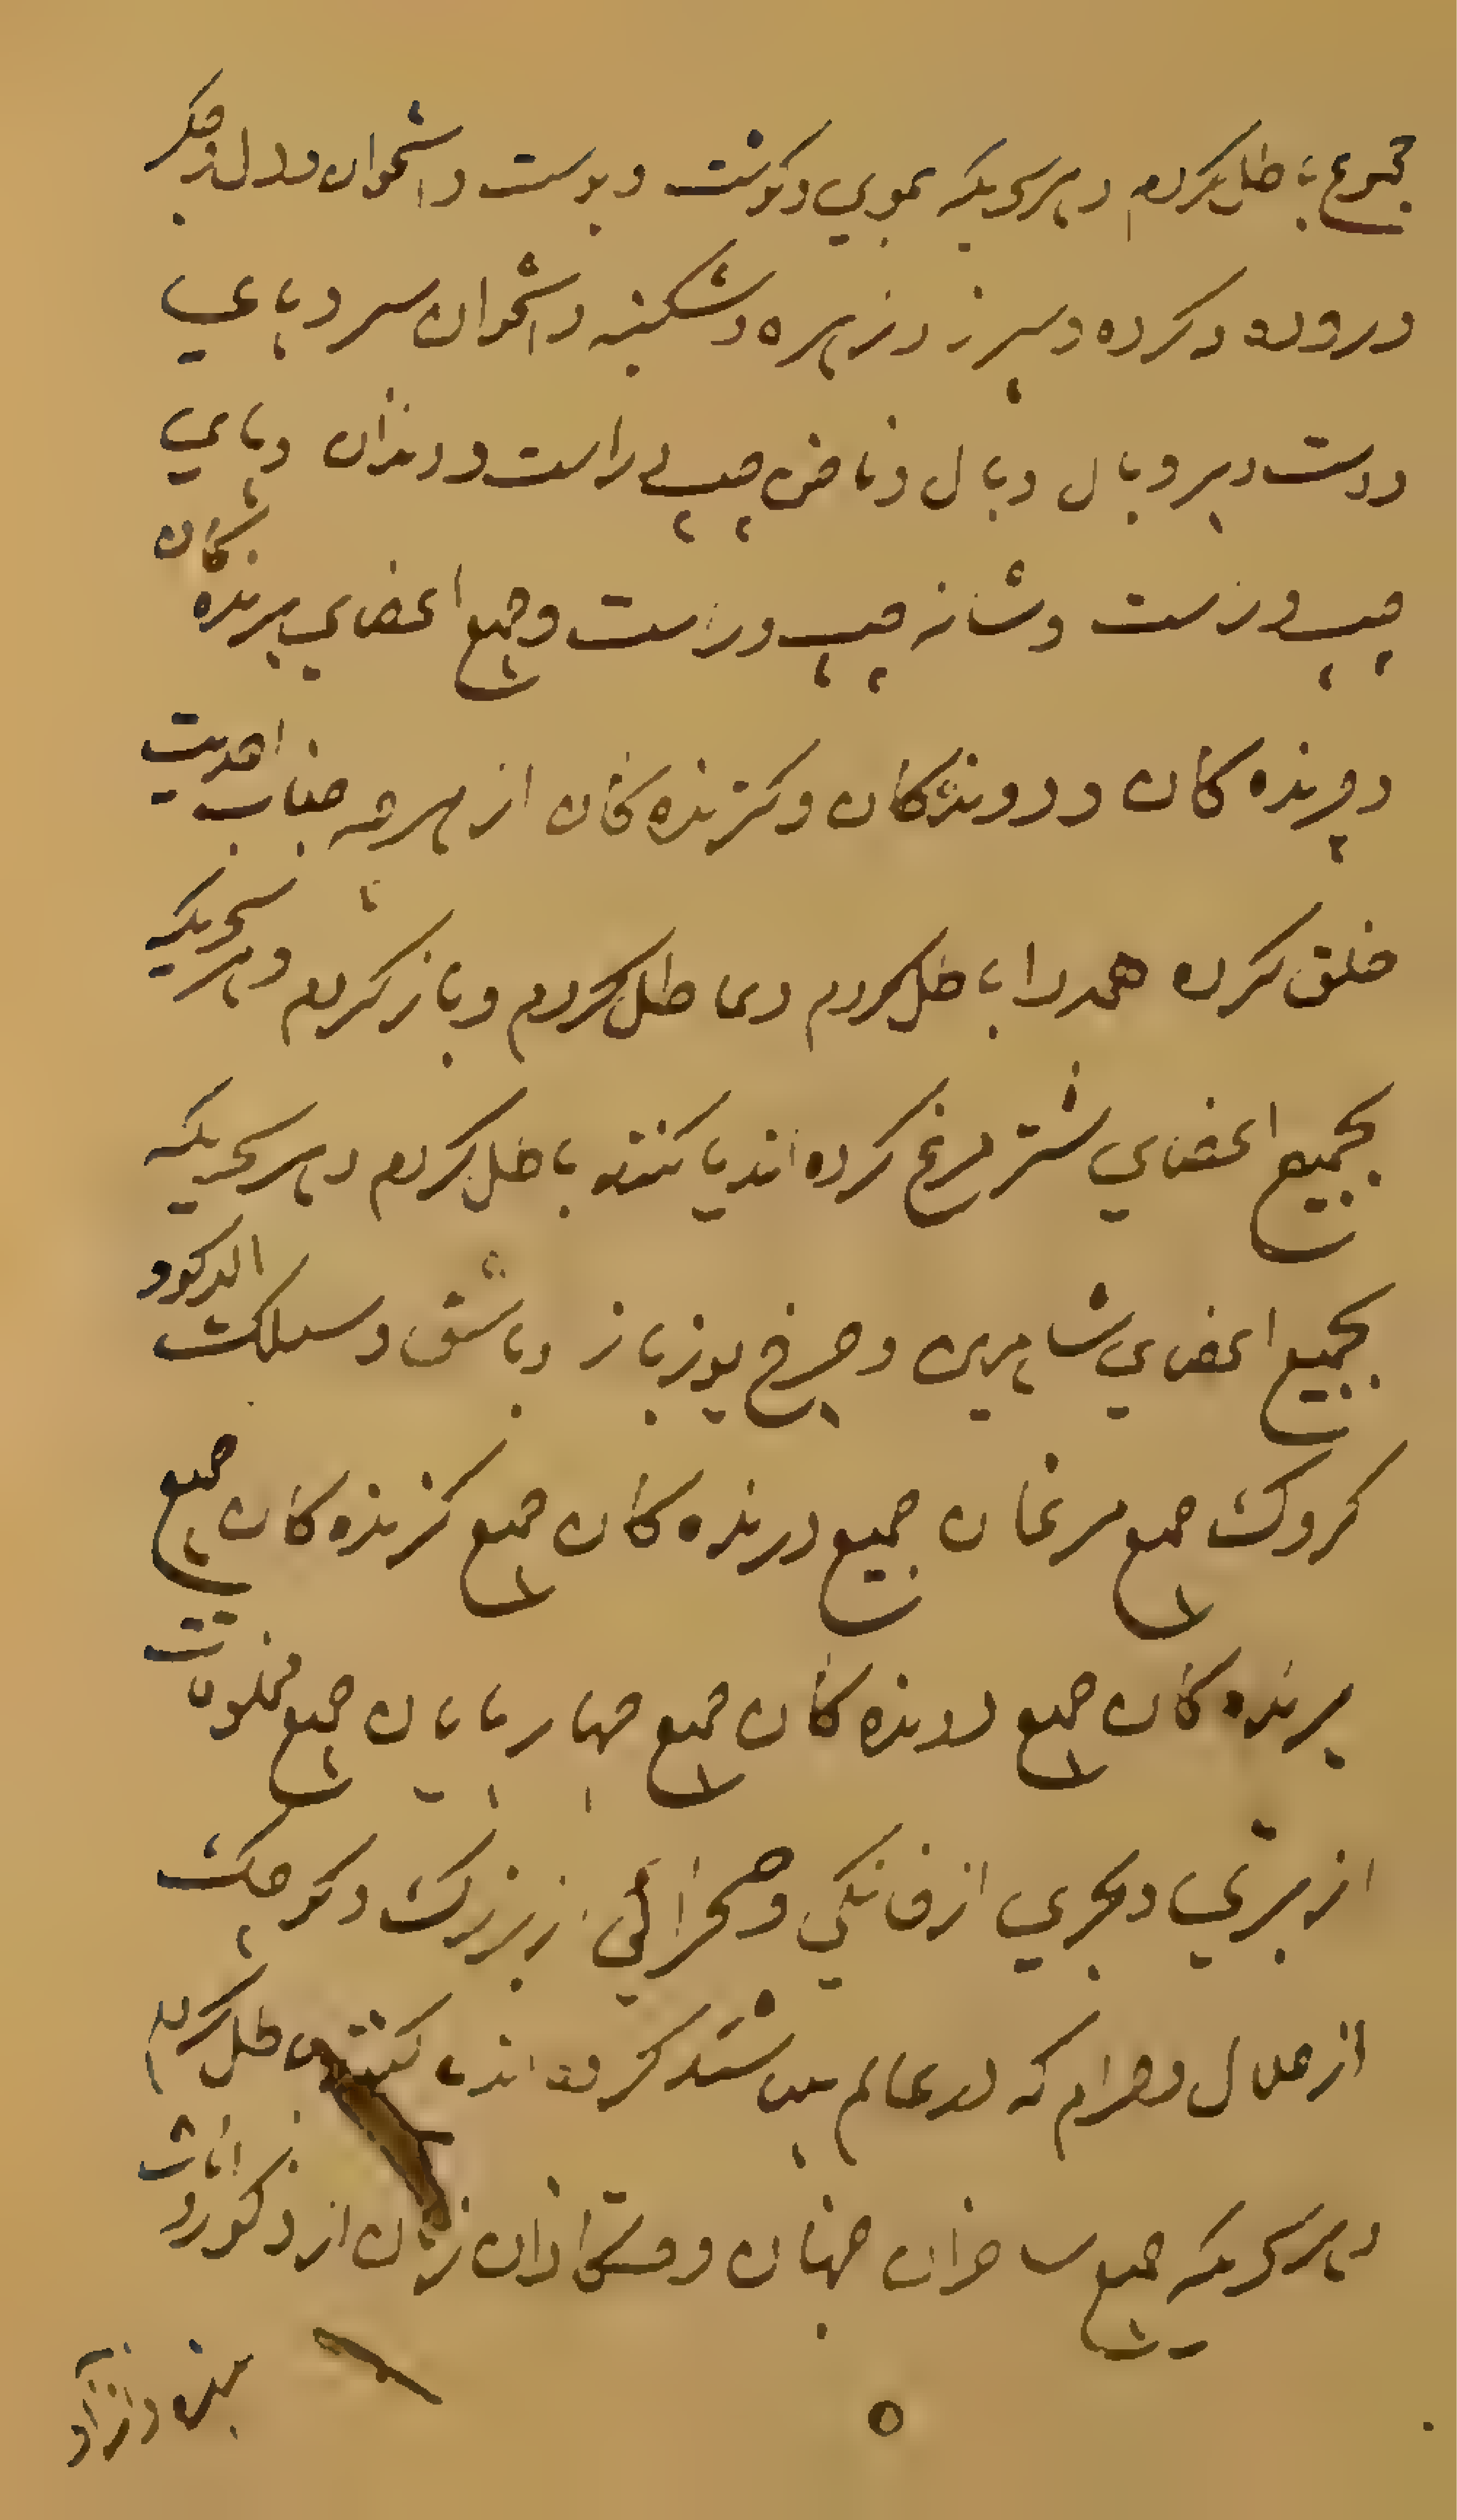 مجموع باطل کردم و هر سحریکه بموی و کوشت و پوست و استخوان و دل و جکر
و روده و کرده و سپرز و زهره و شکنبه و استخوان سر و پای
و دست و پر و بال و بال و ناخن چپ و راست و دندان و پای
چپ و راست و شانه چپ و راست و جمیع اعضای پرنده کان
و چرنده کان و دونده کان و کزنده کان از هرچه جناب احدیت
خلق کرده همه را باطل کردم و باطل کردم و باز کردم و هر سحریکه
بجمیع اعضای شتر مرغ کرده اند یا کنند باطل کردم و هر سحریکه
بجمیع اعضای شاهین و چرخ یوز باز و باشق و
کروک جمیع مرغان جمیع درنده کان جمیع کزنده کان جمیع
پرنده کان جمیع رونده کان جمیع چهار پایان جمیع مخلوقات
از برّی و بحری از خانکی و صحرائی از بزرک و کوچک
از حلال و حرام که در عالم میباشند کرده اند یا کنند باطل کردم
و هر سحریکه جمیع ساحران جهان و زنان از ذکور و اناث
بنده و ازاد